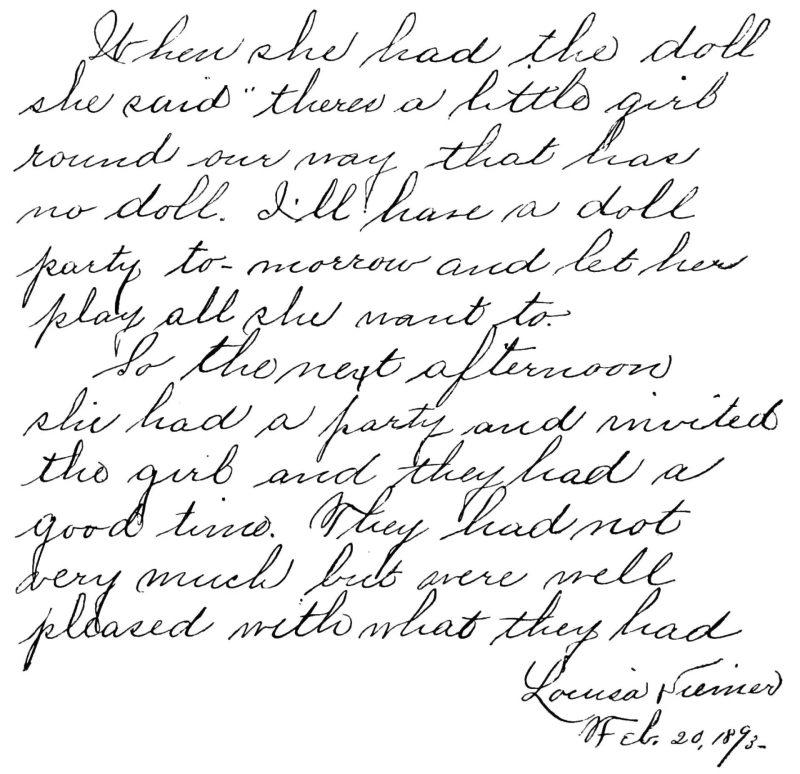 When she had the doll
she said "theres a little girl
round our way that has
no doll. I'll have a doll
party to-morrow and let her
play all she want to.
So the next afternoon
she had a party and invited
the girl and they had a
good time. They had not
very much but were well
pleased with what they had
Louisa Niemer
Feb. 20, 1893-